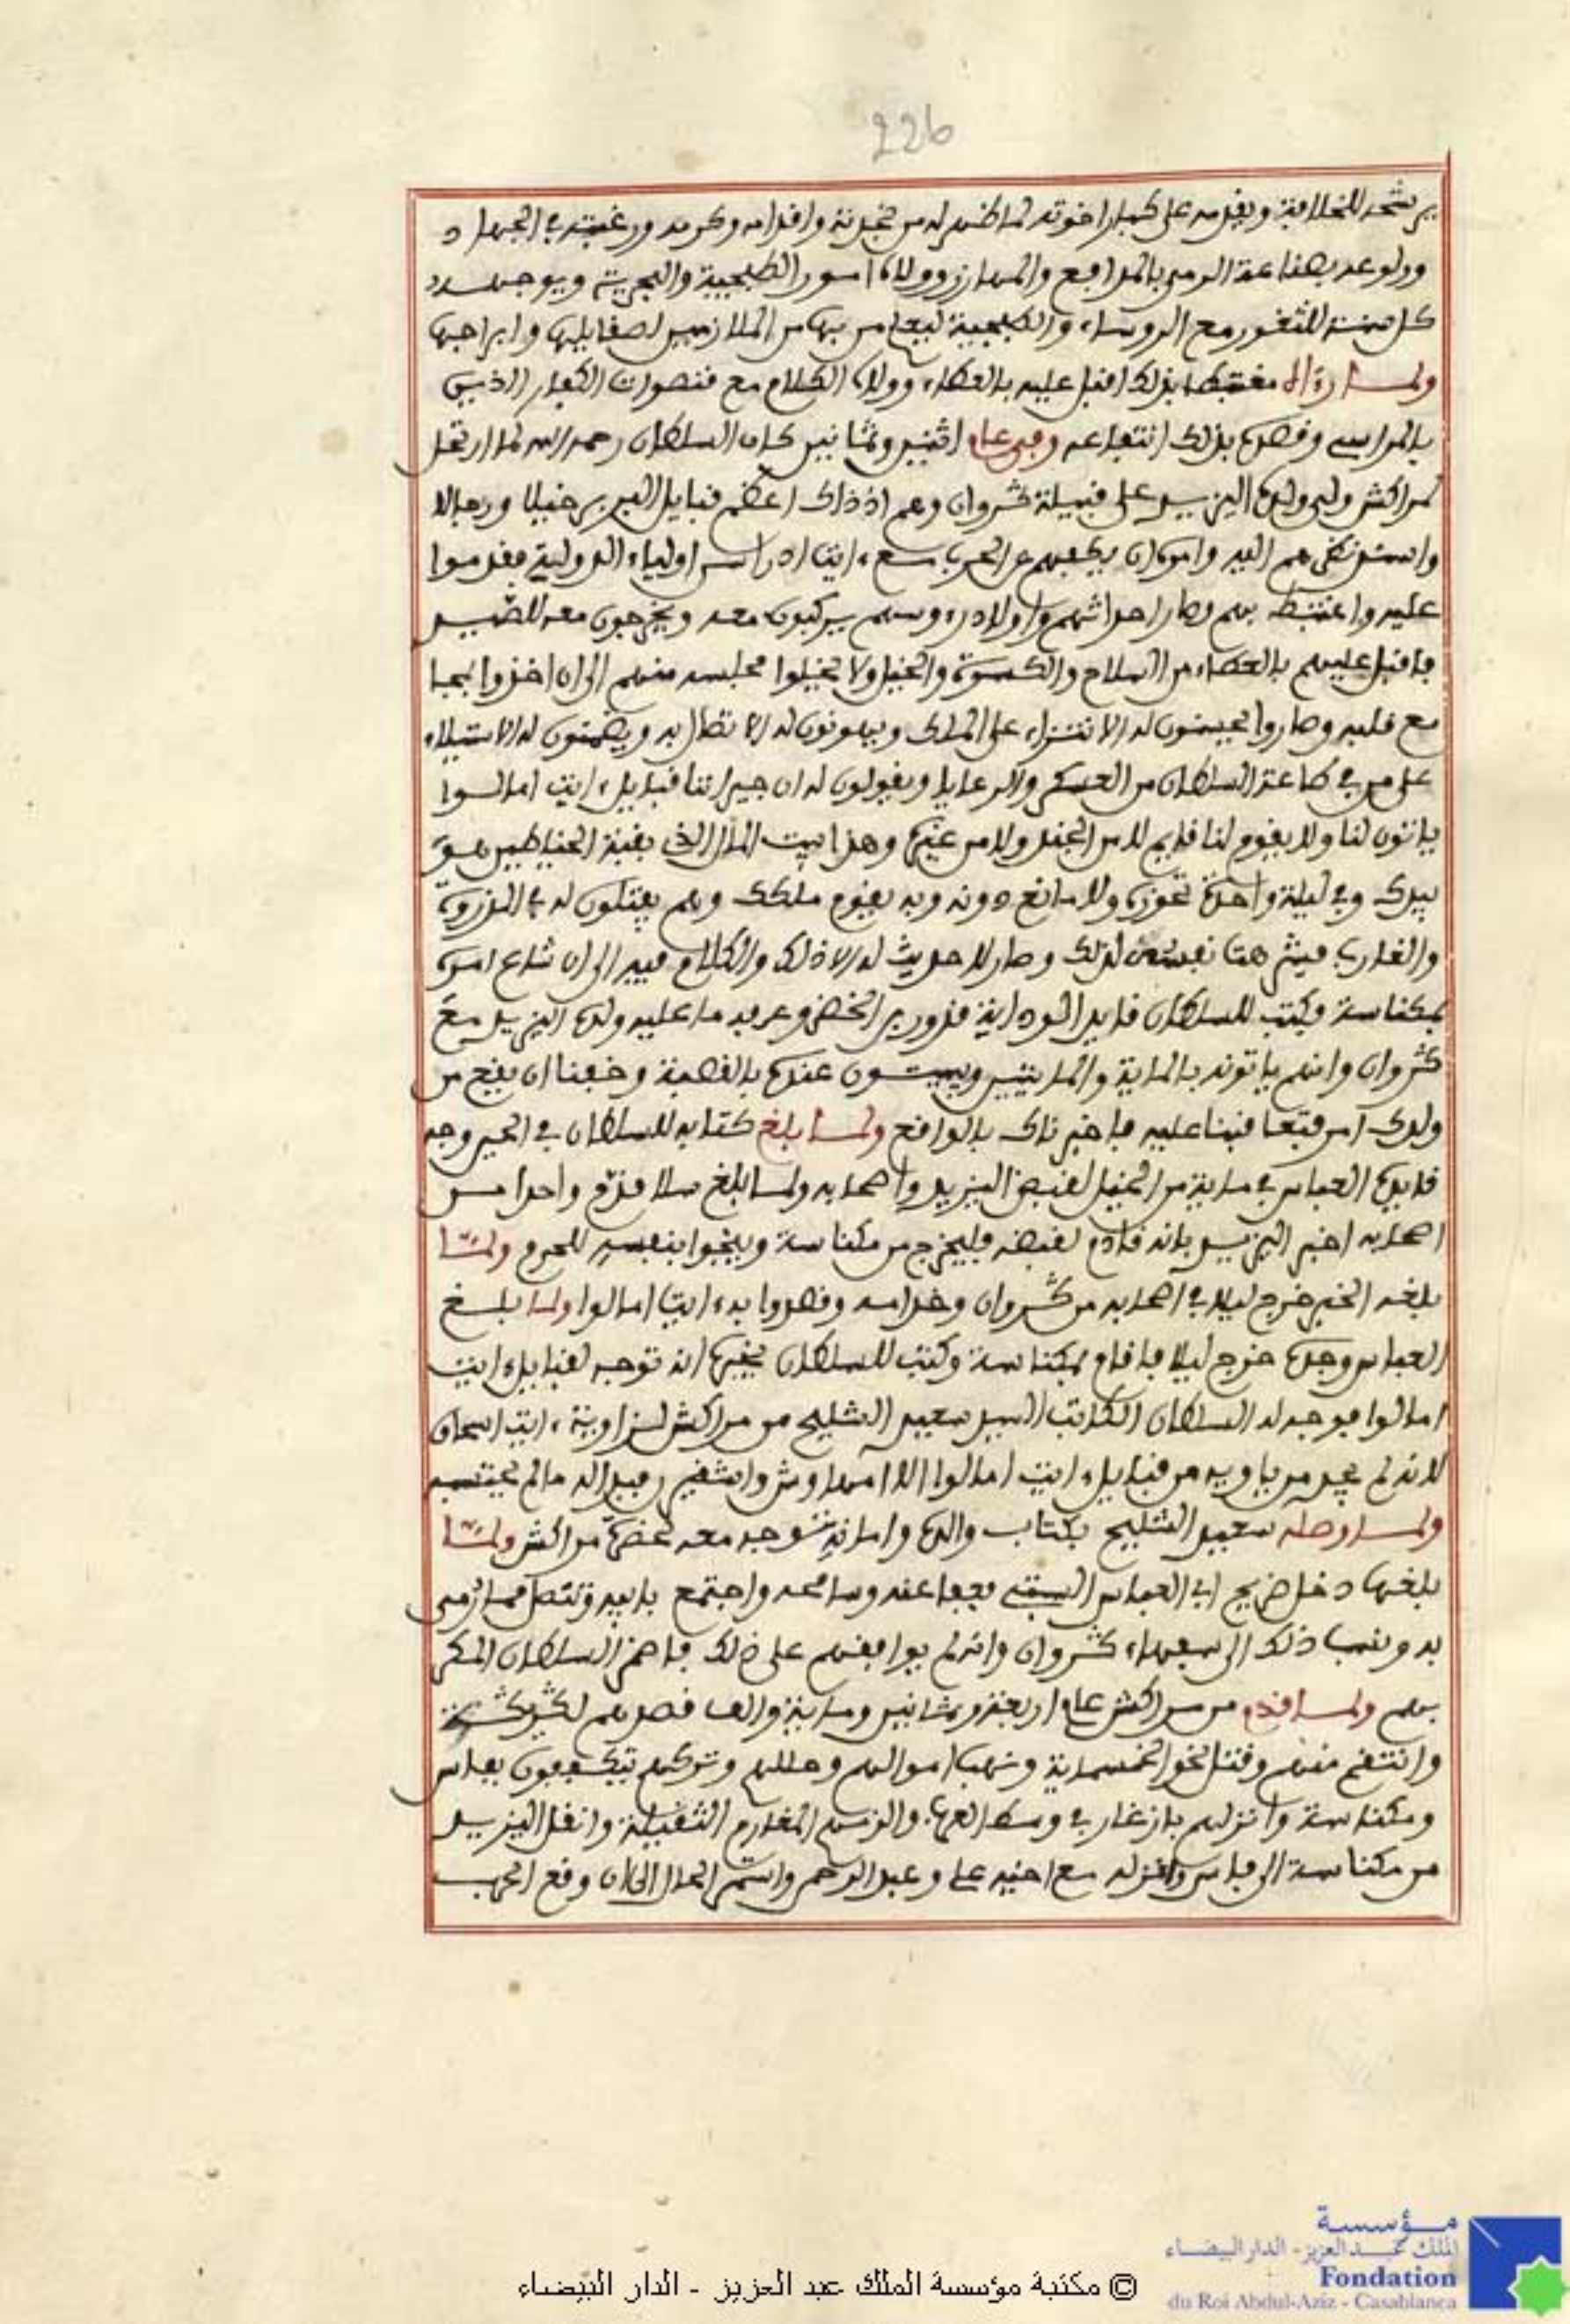 226
يرشحه للخلافة ويقدمه على كبار اخوته لما ظهر له من نجدته واقدامه وكرمه ورغبته في الجهاد
وولوعه بصناعة الرمي بالمدافع والمهارز وولاه امور الطبجية والبحرية ويوجهه
كل سنة للثغور مع الروساء والطبجية ليعلم من بها من الملازمين لصقايلها وابراجها
ولما رءاه مغتبطا بذلك اقبل عليه بالعطاء وولاه الكلام مع قنصوات الكفار الذين
بالمراسي وقصده بذلك انتفاعه وفي عام اثنين وثمانين كان السلطان رحمه الله لما ارتحل
لمراكش ولى ولده اليزيد على قبيلة كروان وهم اذ ذاك اعظم قبايل البربر خيلا ورجالا
واستدنى هم اليه وامره ان يكفهم عن الحرب مع ءايت ادراسن اولياء الدولة فقدموا
عليه واغتبط بهم وصار احداثهم واولاد رءوسهم يركبون معه ويخرجون معه للصيد
فاقبل عليهم بالعطاء من السلاح والكسوة والخيل ولا يخيلوا مجلسه منهم الى ان اخذوا بمجا
مع قلبه وصاروا يحسنون له الانتزاء على الملك ويهونون له الاتصال به ويضمنون له الاستيلاء
على من في طاعة السلطان من العسكر والرعايا ويقولون له ان جيراننا قبايل ءايت امالوا
ياتون لنا ولا يقوم لنا قايم لا من الجند ولا من غيره وهذا بيت المال الذي بقبة الخياطين هو
بيدك وفي ليلة واحدة تحوزه ولا مانع دونه وبه يقوم ملكك وهم يفتلون له في الذروة
والغارب فيثر هنا نفسه لذلك وصار لا حديث له الا ذلك والكلام فيه الى ان شاع امره
بمكناسة فكتب للسلطان قايد الودايا قدور بن الخضر وعرفه ما عليه ولده اليزيد مع
كروان وانهم ياتونه بالماية والمايتين ويبيتون عنده بالقصبة وخفنا ان يقع من
ولدك امر فتعاقبنا عليه فاخبرناك بالواقع ولما بلغ كتابه للسلطان في الحين وجه
قايده العباس في ماية من الخيل لقبض اليزيد واصحابه ولما بلغ سلا قدم واحدا من
اصحابه اخبر اليزيد بانه قادم لقبضه فليخرج من مكناسة وينجوا بنفسه للحرم ولما
بلغه الخبر خرج ليلا في اصحابه من كروان وخدامه وقصدوا به ءايت امالوا ولما بلغ
العباس وجده خرج ليلا فاقام بمكناسة وكتب للسلطان يخبره انه توجه لقبايل ءايت
امالوا فوجه له السلطان الكاتب السيد سعيد الشليح من مراكش لزاوية ءايت اسحاق
لانه لم يجد من ياويه من قبايل ءايت امالوا الا امهاوش واشقير فبدا له ما لم يحتسبه
ولما وصله سعيد الشليح بكتاب والده وامانه توجه معه لحضرة مراكش ولما
بلغها دخل ضريح ابي العباس السبتي فعفا عنه وسامحه واجتمع بابيه وتنصل مما رمي
به ونسب ذلك الى سفهاء كروان وانه لم يوافقهم على ذلك فاضمر السلطان المكر
بهم ولما قدم من مراكش عام اربعة وثمانين وماية والف قصدهم لكريكرة
وانتقم منهم وقتل نحو الخمسماية ونهب اموالهم وحللهم وتركهم يتكففون بفاس
ومكناسة وانزلهم بازغار في وسط العرب والزمهم المغارم الثقيلة وانقل اليزيد
من مكناسة الى فاس وانزله مع اخيه علي وعبد الرحمن واستمر الحال الى ان وقع الحرب
مؤسسة
الملك عبد العزيز - الدار البيضاء
Fondation
du Roi Abdul-Aziz - Casablanca
© مكتبة مؤسسة الملك عبد العزيز - الدار البيضاء